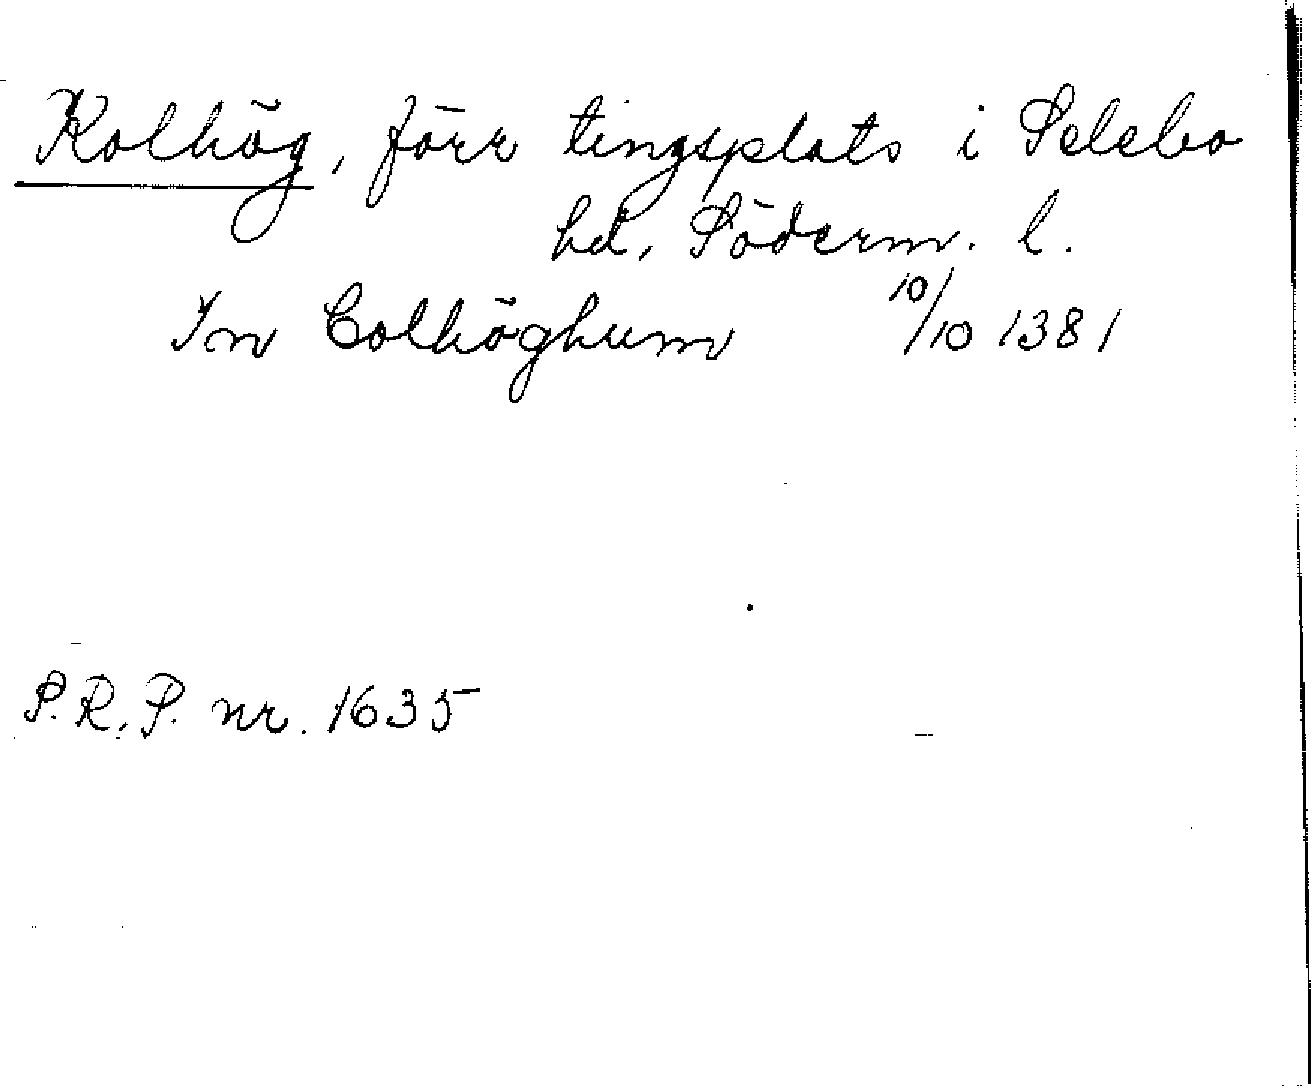 Kolhög, förr tingsplats i Selebo
hd, Söderm. l.
In Colhöghum 10/10 1381
P.R.P. nr. 1635